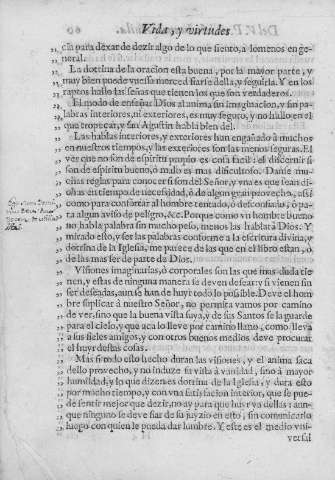 Vida, y virtudes
„ cia para dexar de dezir algo de lo que siento, a lo menos en ge-
„ neral.
„ La dotrina de la oracion esta buena, por la mayor parte, y
„ muy bien puede vuessa merced fiarse della, y seguilla. Y en los
„ raptos hallo las señas que tienen los que son verdaderos.
„ El modo de enseñar Dios al anima sin imaginacion, y sin pa-
„ labras interiores, ni exteriores, es muy seguro, y no hallo en el
„ que tropeçar, y san Agustin habla bien dèl.
„ Las hablas interiores, y exteriores han engañado à muchos
„ en nuestros tiempos, y las exteriores son las menos seguras. El
„ ver que no son de espiritu propio es cosa facil: el discernir si
„ son de espiritu bueno, ò malo es mas dificultoso. Danse mu-
„ chas reglas para conocer si son del Señor, y vna es que sean di-
„ chas en tiempo de necessidad, ò de algun gran prouecho, assi
„ como para confortar al hombre tentado, ò desconfiado, ò pa-
„ ra algun aviso de peligro, &c. Porque como vn hombre bueno
„ no habla palabra sin mucho peso, menos las hablarà Dios. Y
„ mirado esto, y ser las palabras conforme a la escritura divina, y
„ dotrina de la Iglesia, me parece de las que en el libro estan, ò
„ de las mas ser de parte de Dios.
„ Visiones imaginarias, ò corporales son las que mas duda tie-
„ nen, y estas de ninguna manera se deven desear: y si vienen sin
„ ser deseadas, aun se han de huyr todo lo possible. Deve el hom
„ bre suplicar à nuestro Señor, no permita vamos por camino
„ de ver, sino que la buena vista suya, y de sus Santos se la guarde
„ para el cielo, y que aca lo lleve por camino llano, como lleva
„ a sus fieles amigos, y con otros buenos medios deve procurar
„ el huyr destas cosas.
„ Mas si todo esto hecho duran las visiones, y el anima saca
„ dello provecho, y no induze su vista à vanidad, sino à mayor
„ humildad, y lo que dizen es dotrina de la Iglesia, y dura esto
„ por mucho tiempo, y con vna satisfacion interior, que se pue-
„ de sentir mejor que dezir, no ay para que huyr ya dellas: aun-
„ que ninguno se deve fiar de su juyzio en esto, sin comunicarlo
„ luego con quien le pueda dar lumbre. Y este es el medio vni-
versal